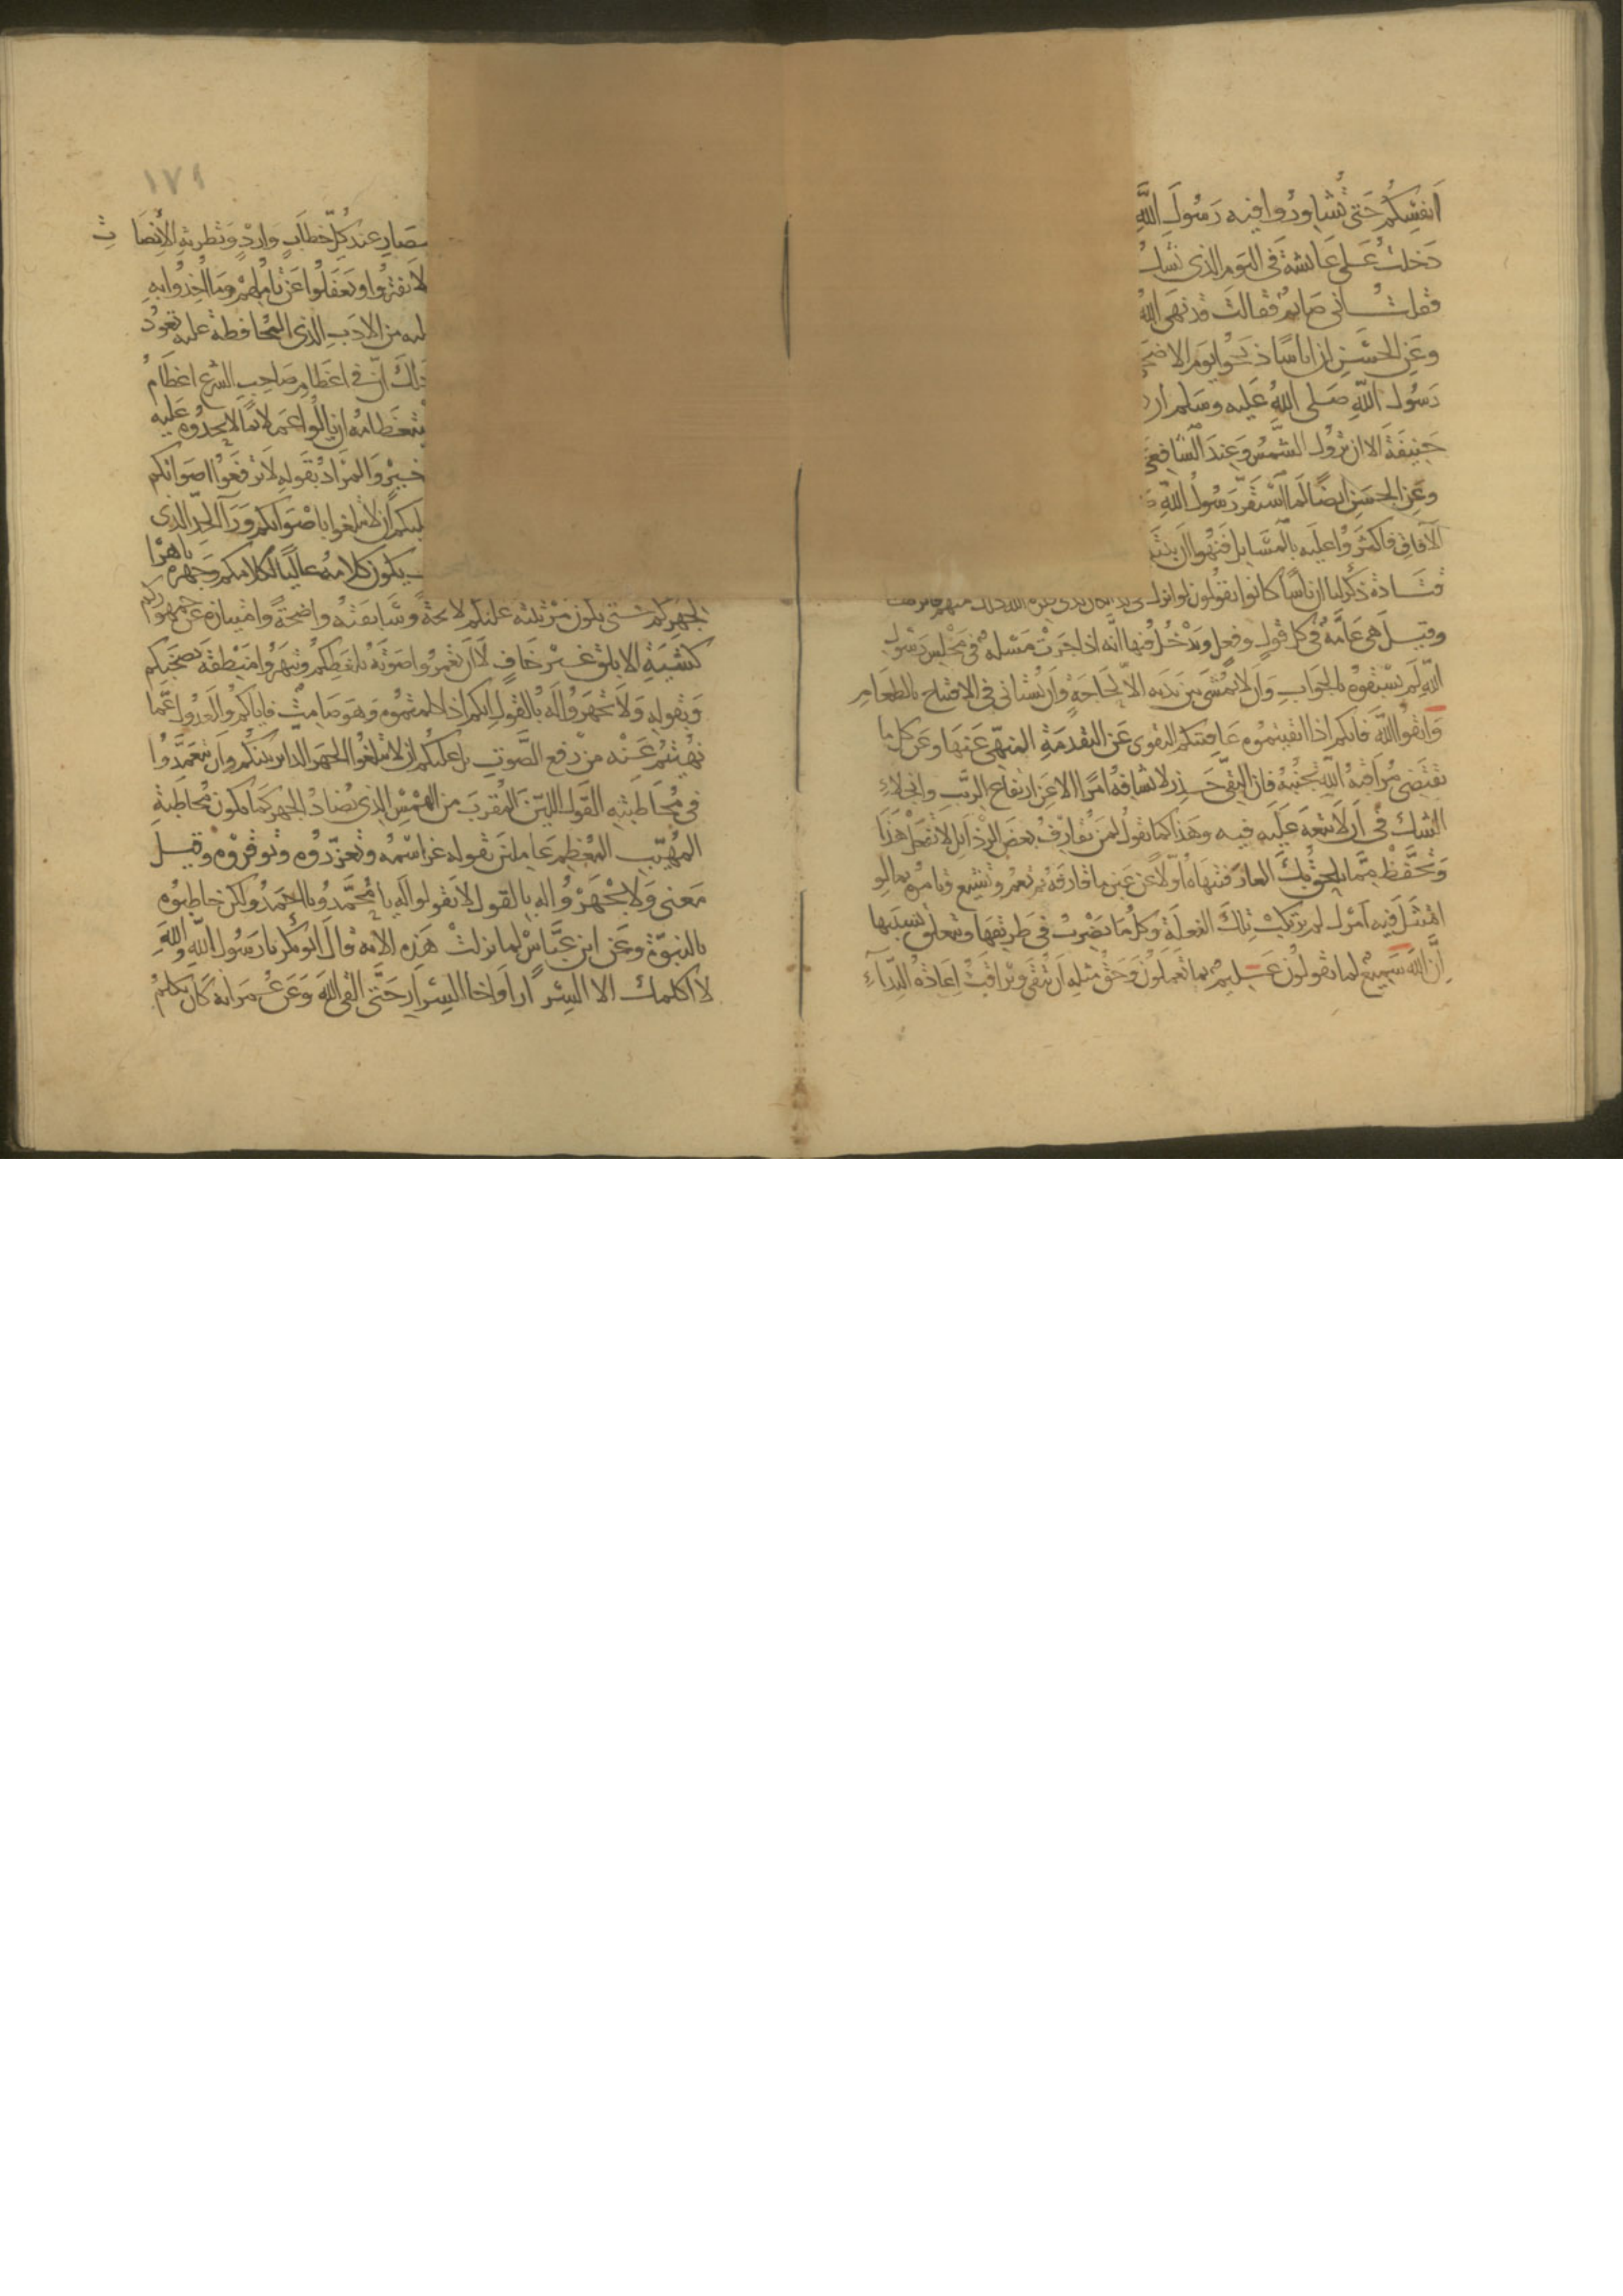 انفسكم حتى تشاوروا فيه رسول الله
دخلت على عائشة فى اليوم الذى نشك
فقلت انى صايم فقالت قد نهى الله
وعن الحسن ان اناسا ذبحوا يوم الاضحى
رسول الله صلى الله عليه وسلم ان
حنيفة الا ان تزول الشمس وعند الشافعى
وعن الحسن ايضا لما استقر رسول الله
الآفاق فاكثروا عليه بالمسايل فنهوا ان
قتادة ذكر لنا ان ناسا كانوا يقولون لو انزل
وقيل هى عامة فى كل قول وفعل ويدخل فيها انه اذا جرت مسلة فى مجلس رسول
الله لم يسبقوه بالجواب وان لا يمشى بين يديه الا لحاجة وان يستانى فى الافتتاح بالطعام
واتقوا الله فانكم اذا اتقيتموه عاقتكم التقوى عن التقدمة المنهى عنها وعن كل ما
تقتضى مراقبة الله تجنبه فان التقى حذر لا يشافه امرا الا عن ارتفاع الريب وانجلاء
الشك فى ان لا تبعة عليه فيه وهذا كما تقول لمن يقارف بعض الرذايل لا تفعل هذا
وتحفظ مما يلحق بك العار فتنهاه اولا عن عين ما قارفه ثم تعم وتشيع وتامره بما لو
امتثل فيه امرك لم يرتكب تلك الفعلة وكل ما يضرب فى طريقها ويتعلق بسببها
ان الله سميع لما تقولون عليم بما تعملون وحق مثله ان يتقى ويراقب اعادة النداء
١٧١
عند كل خطاب وارد وتطرية الانصات
لا يفتروا ويغفلوا عن تاملهم وما اخذوا به
من الادب الذى المحافظة عليه تعود
ذلك ان فى اعظام صاحب الشرع اعظام
ان يالوا عملا بما لا يحدوه عليه
خير والمراد بقوله لا ترفعوا اصواتكم
ان لا تبلغوا باصواتكم ورآ الحد الذى
يكون كلامه عاليا لكلامكم وجهره باهرا
لجهركم حتى تكون مزيته عليكم لايحة وسابقته واضحة وامتيازه عن جمهوركم
كشية الابلق غير خاف لا ان تغمروا صوته بلغطكم وتبهروا منطقه بصخبكم
وبقوله ولا تجهروا له بالقول انكم اذا كلمتموه وهو صامت فاياكم والعدول عما
نهيتم عنه من رفع الصوت بل عليكم ان لا تبلغوا الجهر الداير بينكم وان تتعمدوا
فى مخاطبته القول اللين المقرب من الهمس الذى يضاد الجهر كما تكون مخاطبة
المهيب المعظم عاملين بقوله عز اسمه وتعزروه وتوقروه وقيل
معنى ولا تجهروا له بالقول لا تقولوا له يا محمد ويا احمد ولكن خاطبوه
بالنبوة وعن ابن عباس لما نزلت هذه الاية قال ابو بكر يا رسول الله والله
لا اكلمك الا السرار او اخا السرار حتى القى الله وعن عمر انه كان يكلم